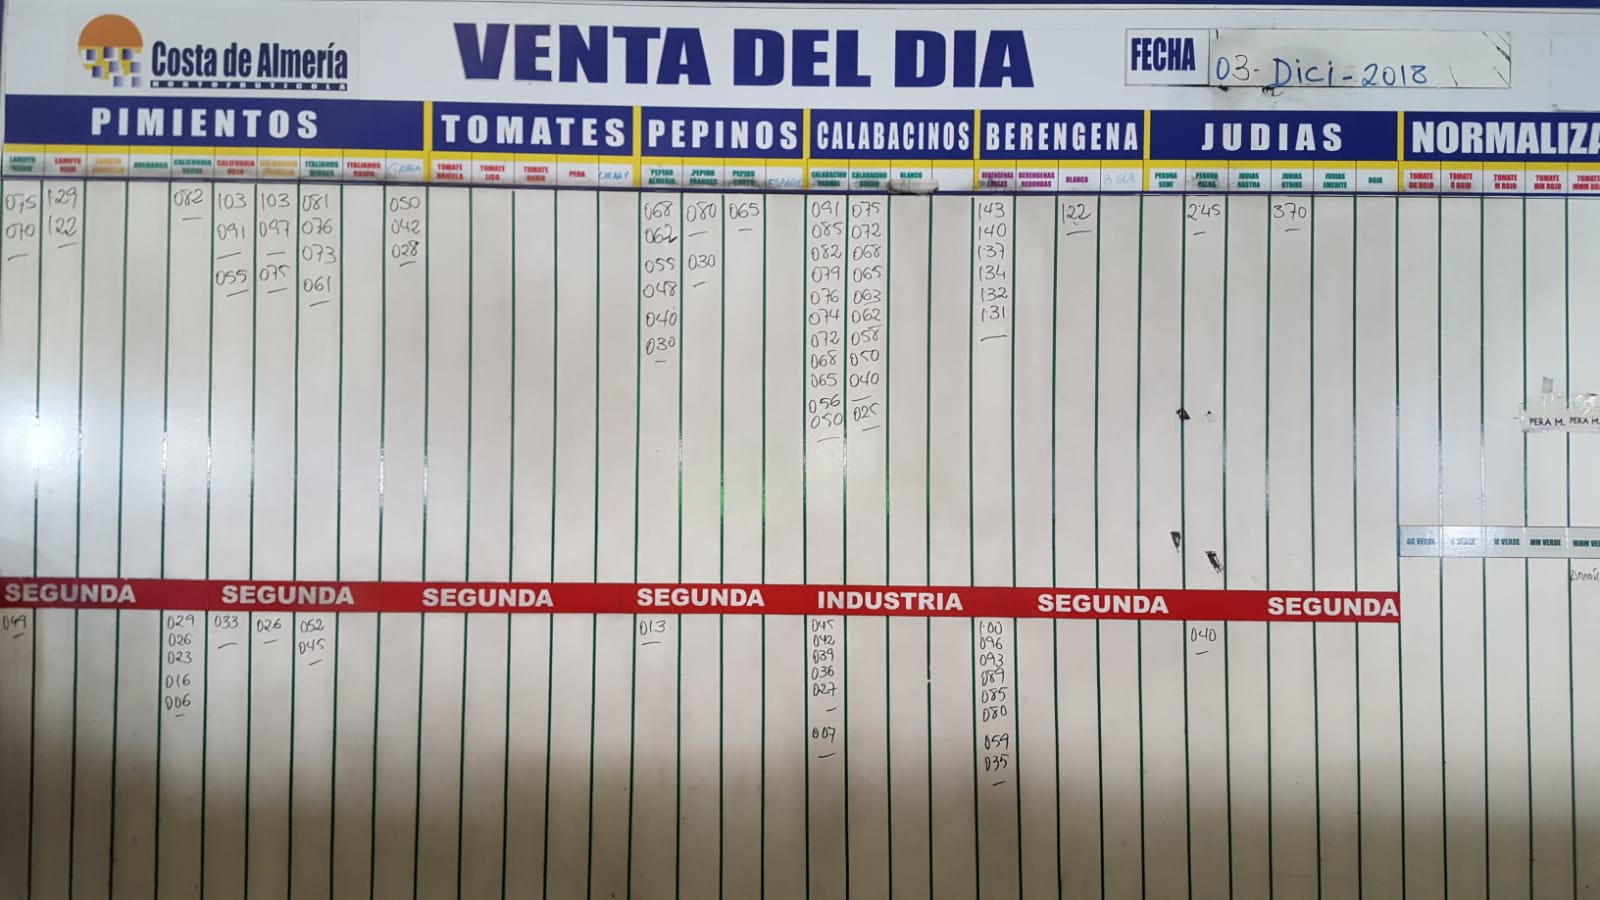 Costa de Almería
HORTOFRUTICOLA
VENTA DEL DIA
FECHA 03-Dici-2018
PIMIENTOS TOMATES PEPINOS CALABACINOS BERENGENA JUDIAS NORMALIZA
LAMUYO ROJO ASURADOS CALIFORNIA VERDE CALIFORNIA ROJO ITALIANOS VERDES ITALIANOS ROJOS TOMATE DANIELA TOMATE LISO TOMATE RAMO PERA CHERRY PEPINO ALMERIA PEPINO FRANCES PEPINO CORTO CALABACINO NORMAL CALABACINO GORDO BLANCO BERENGENAS LARGAS BERENGENAS REDONDAS BLANCA PERONA SEMI PERONA JUDIAS RASTRA JUDIAS STRIKE JUDIAS EMERITE ROJA TOMATE GG ROJO TOMATE G ROJO TOMATE M ROJO TOMATE MM ROJO TOMATE MMM ROJO
075 129 082 103 103 081 050 068 080 065 091 075 143 122 245 370
070 122 091 097 076 042 062 085 072 140
055 075 073 028 055 030 082 068 137
061 048 079 065 134
040 076 063 132
030 074 062 131
072 058
068 050
065 040
056 025
050
PERA M. PERA M.
GG VERDE G VERDE M VERDE MM VERDE MMM VER
SEGUNDA SEGUNDA SEGUNDA SEGUNDA INDUSTRIA SEGUNDA SEGUNDA
049 029 033 026 052 013 045 1.00 040
026 045 042 096
023 039 093
016 036 089
006 027 085
080
007 059
035